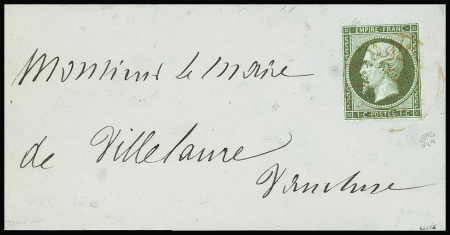 EMPIRE FRANC.
1.C POSTES 1.C
Monsieur le Maire
de Villelaure
Vaucluse